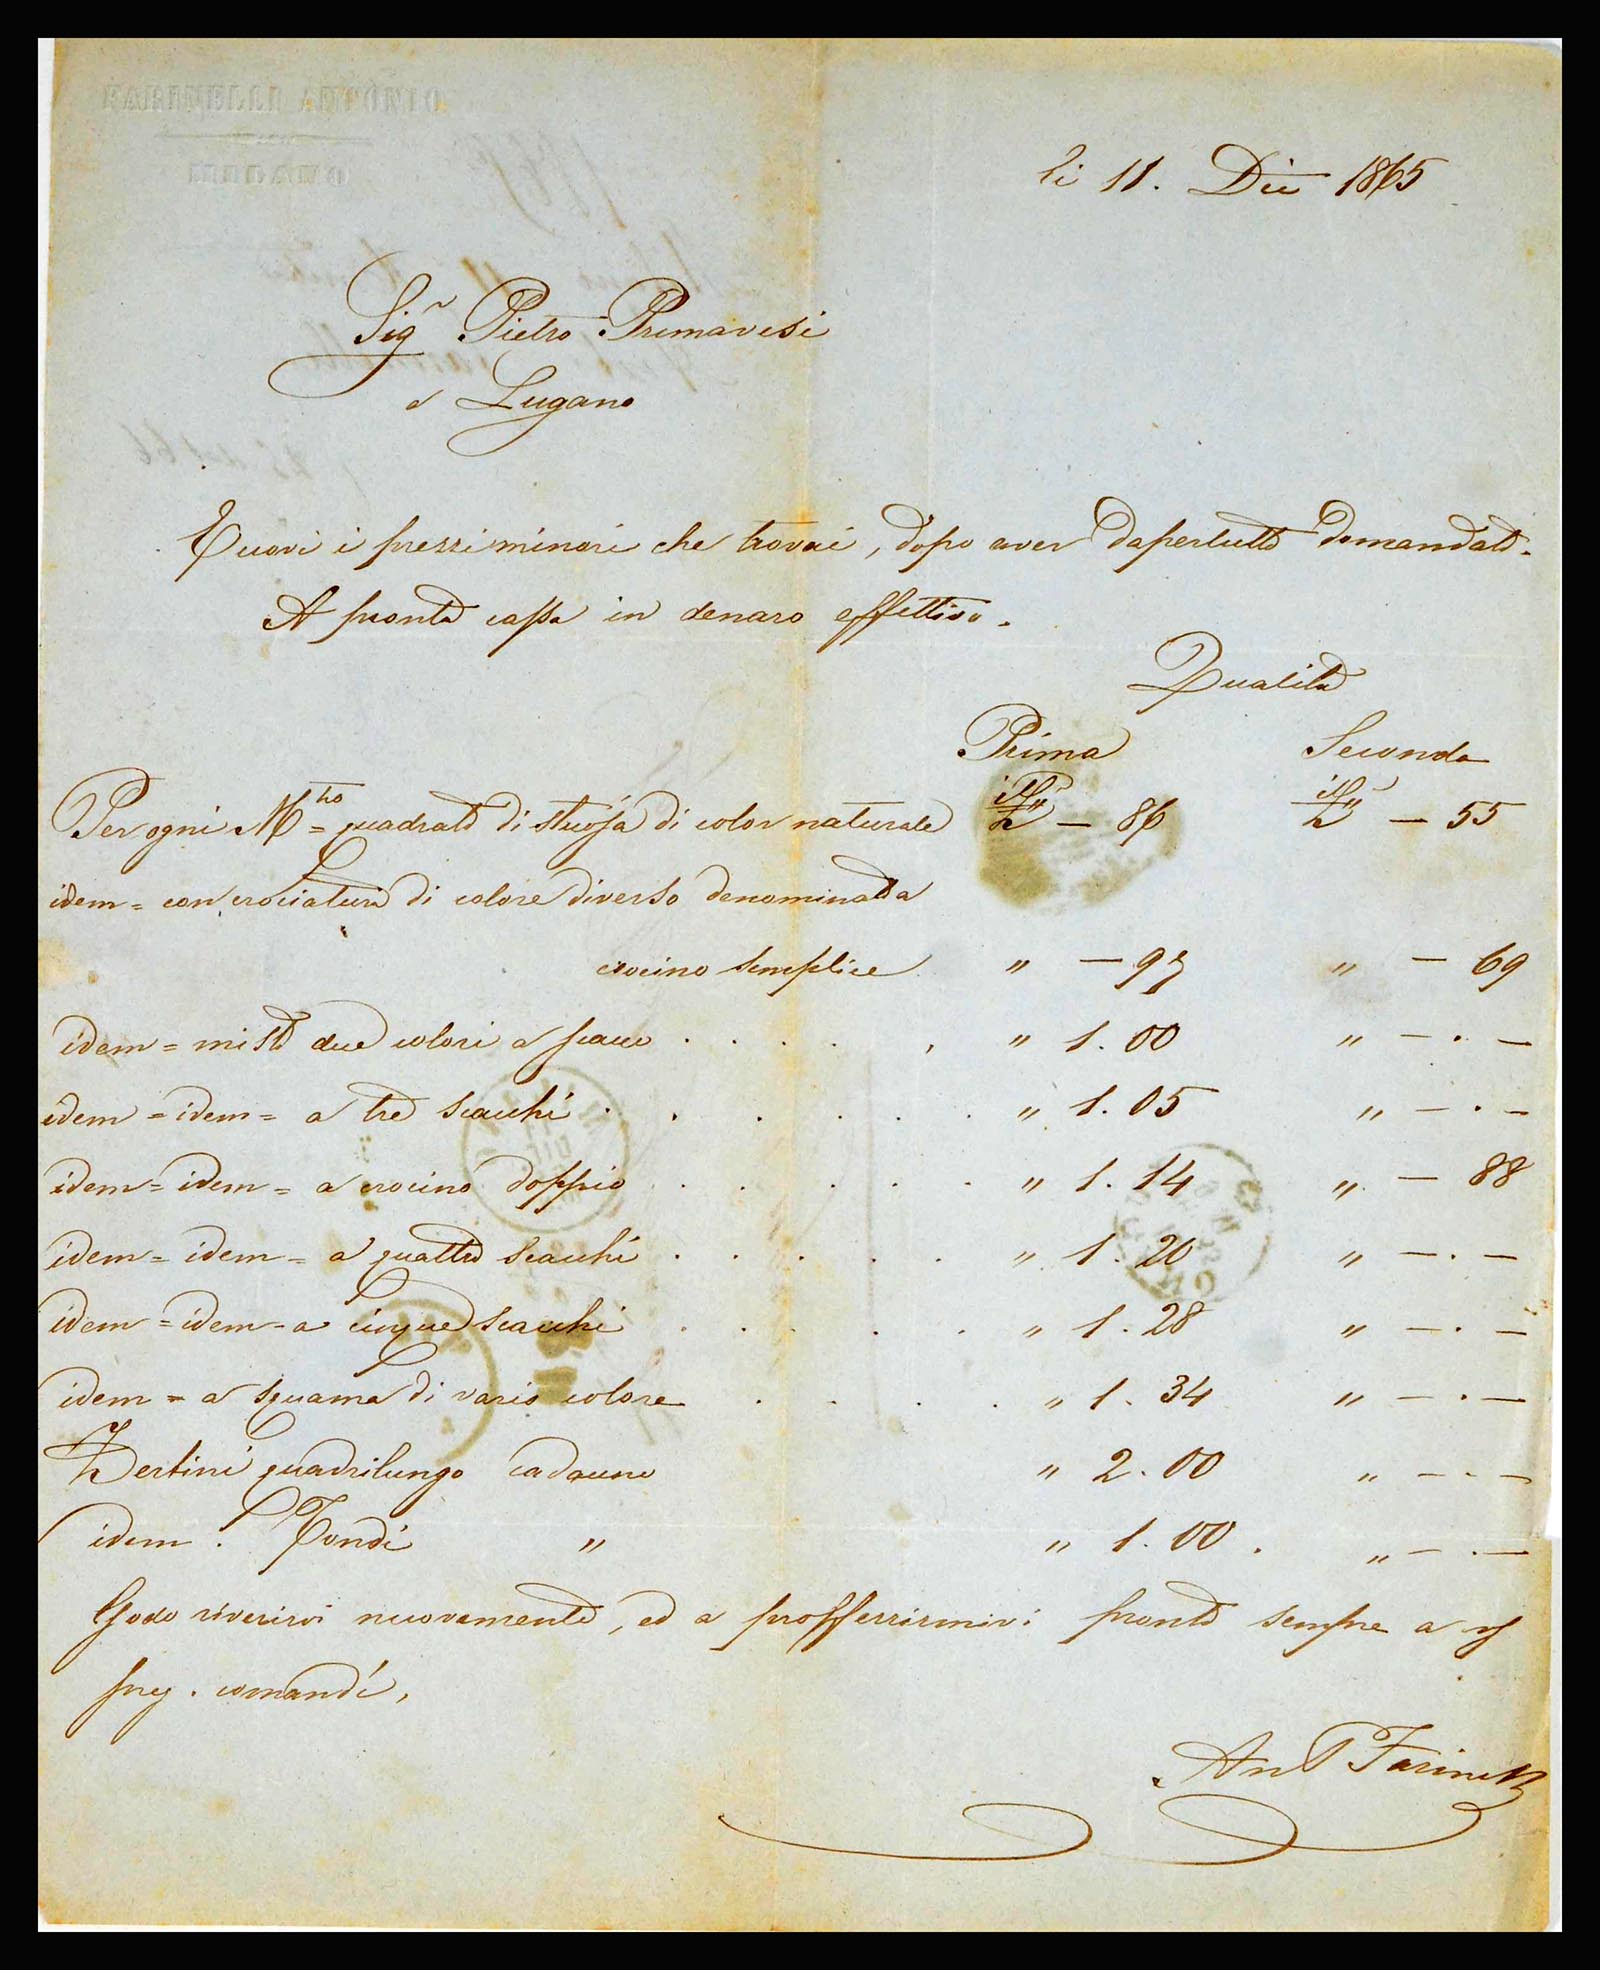 FARINELLI ANTONIO
MILANO
li 11. Dic 1865
Sigr Pietro Primavesi
a Lugano
Eccovi i prezzi minori che trovai, dopo aver dapertutto domandato.
A pronta cassa in denaro effettivo.
Qualità
Prima Seconda
Per ogni Mtro = quadrato di stuoja di color naturale — 86 — 55
idem = con crociatura di colore diverso denominata
crocino semplice " — 97 " — 69
idem = misto due colori a scacco . . . . . " 1.00 " — . —
idem = idem = a tre scacchi . . . . . . " 1.05 " — . —
idem = idem = a crocino doppio . . . . . " 1.14 " — 88
idem = idem = a quattro scacchi . . . . . " 1.20 " — . —
idem = idem = a cinque scacchi . . . . . " 1.28 " — . —
idem = a squama di vario colore . . . . " 1.34 " — . —
quadrilungo cadauno " 2.00 " — . —
idem . Tondi " " 1.00 . " — . —
Godo riverirvi nuovamente, ed a profferirmivi pronto sempre a
preg. comandi,
Ant Farinelli